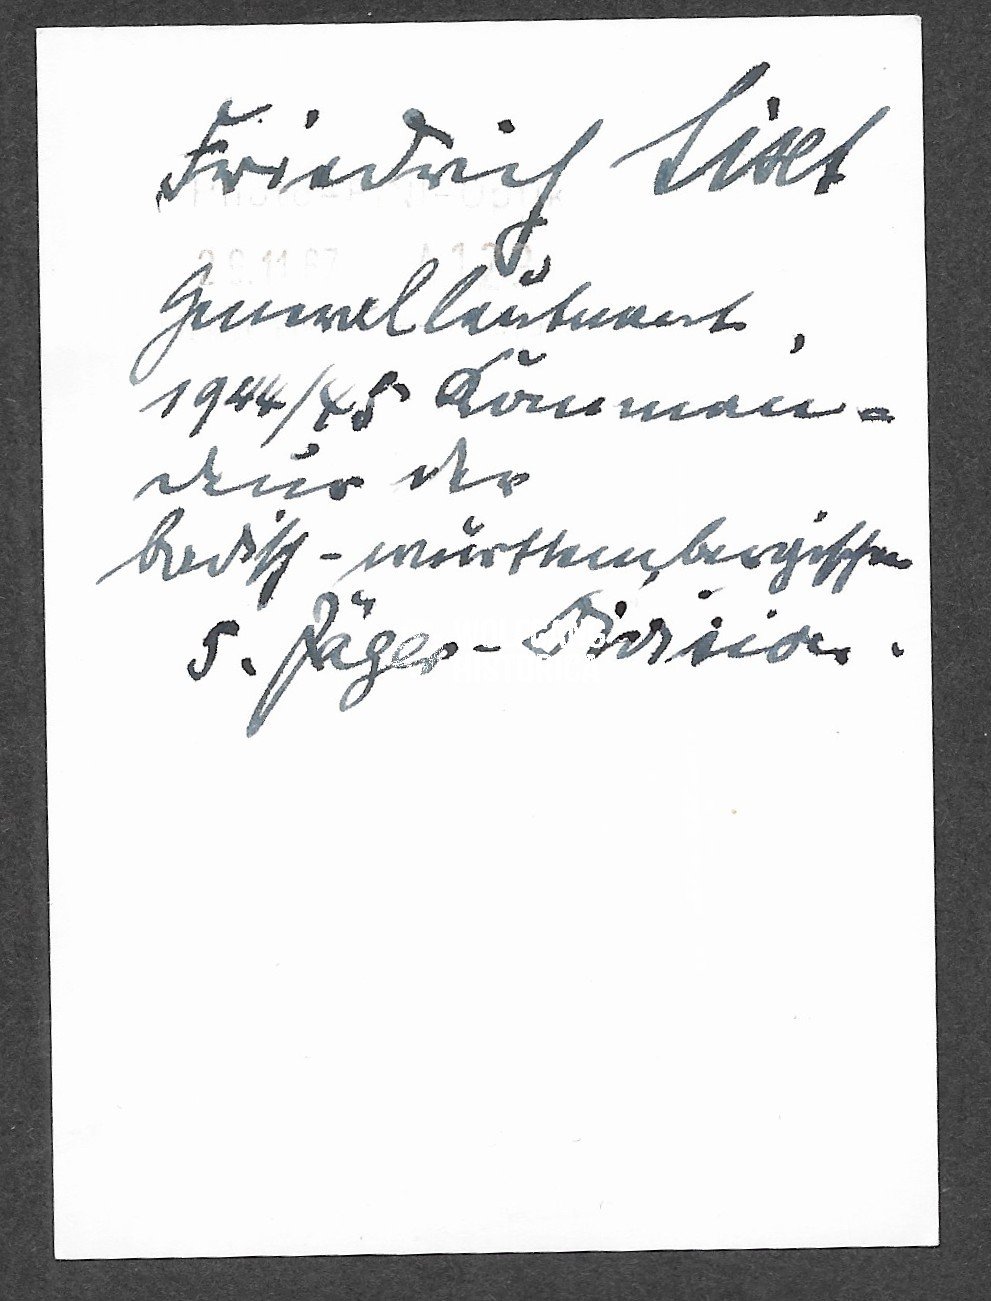 Friedrich Sixt
Generalleutnant,
1944/45 Komman-
deur der
badisch-württembergischen
5. Jäger-Division.
29.11.67
HISTORICA